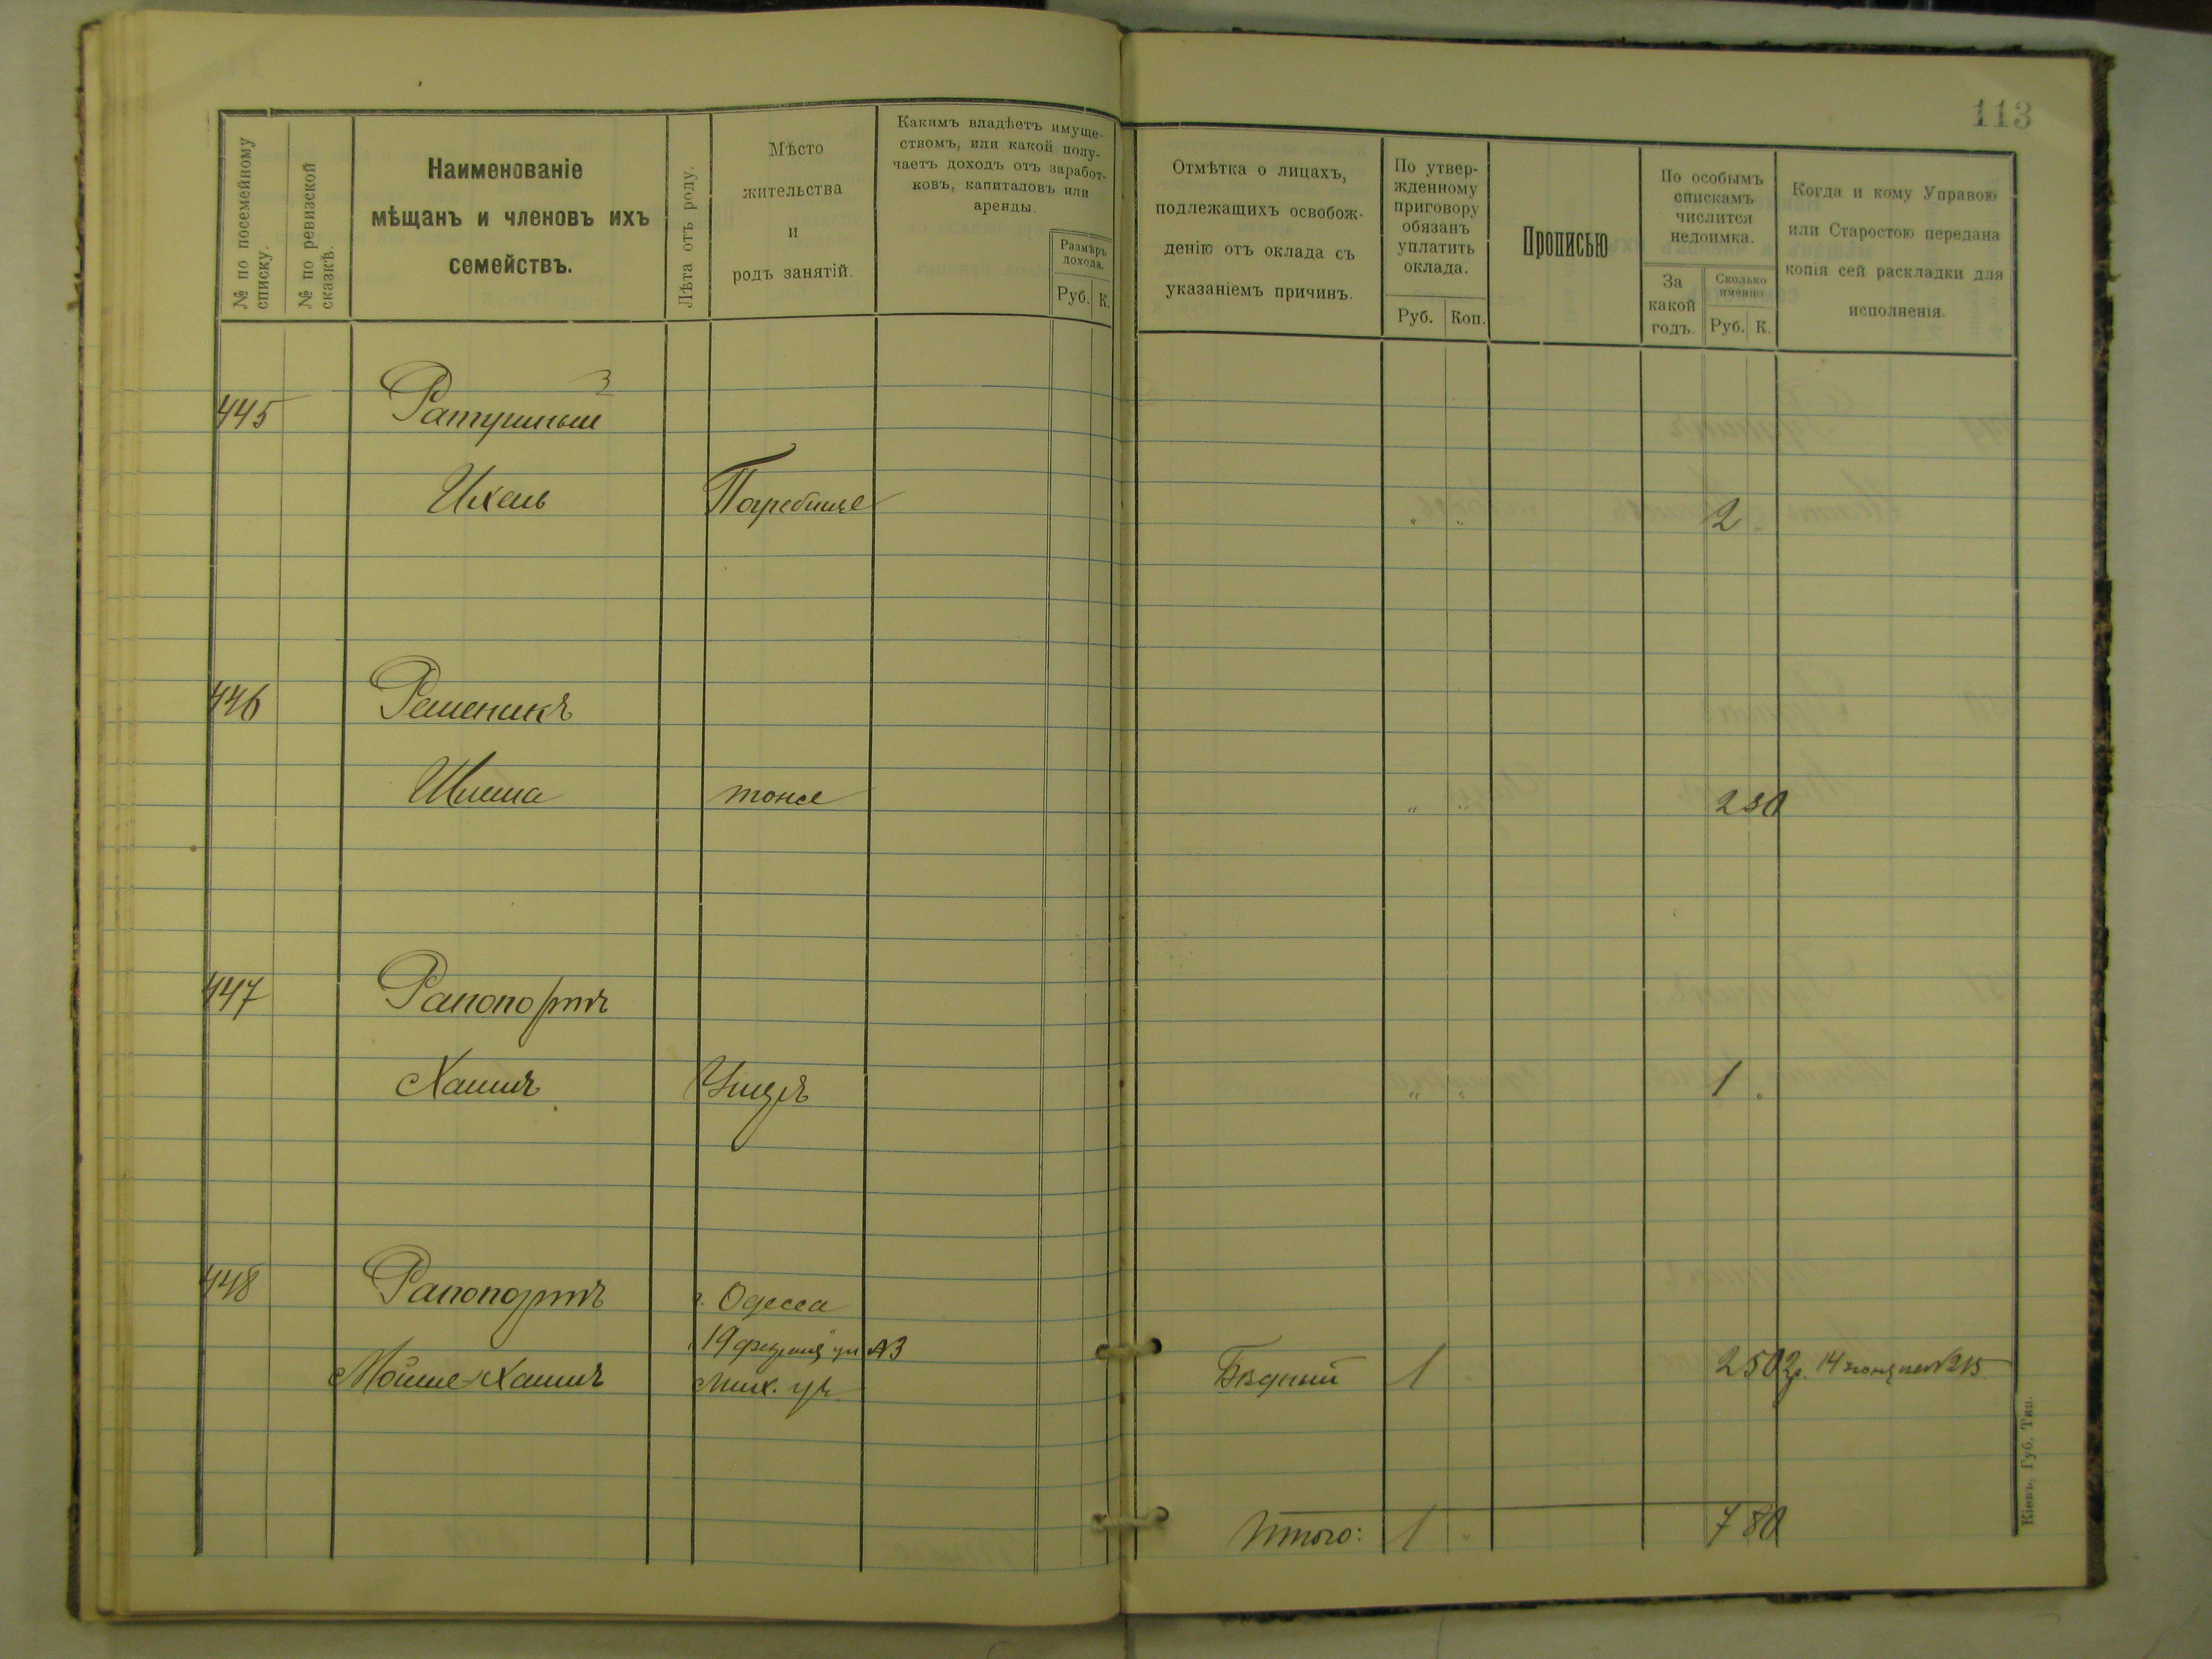 113
№ по посемейному списку.
№ по ревизской сказкѣ.
Наименованіе
мѣщанъ и членовъ ихъ
семействъ.
Лѣта отъ роду.
Мѣсто
жительства
и
родъ занятій.
Какимъ владѣетъ имуще-
ствомъ, или какой полу-
чаетъ доходъ отъ заработ-
ковъ, капиталовъ или
аренды.
Размѣръ
дохода.
Руб. К.
Отмѣтка о лицахъ,
подлежащихъ освобож-
денію отъ оклада съ
указаніемъ причинъ.
По утвер-
жденному
приговору
обязанъ
уплатить
оклада.
Руб. Коп.
Прописью
По особымъ
спискамъ
числится
недоимка.
За
какой
годъ.
Сколько
именно
Руб. К.
Когда и кому Управою
или Старостою передана
копія сей раскладки для
исполненія.
3
445 Ратушный
Ихель Погребище " " 2 "
446 Решеникъ
Шлема тоже " " 2 30
447 Рапопортъ
Хаимъ " " 1 "
448 Рапопортъ г. Одесса
19 февраля ул №3
Мойше-Хаимъ Бѣдный 1 " 2 50 2р. 14 №215
Итого: 1 " 7 80
Кіевъ, Губ. Тип.